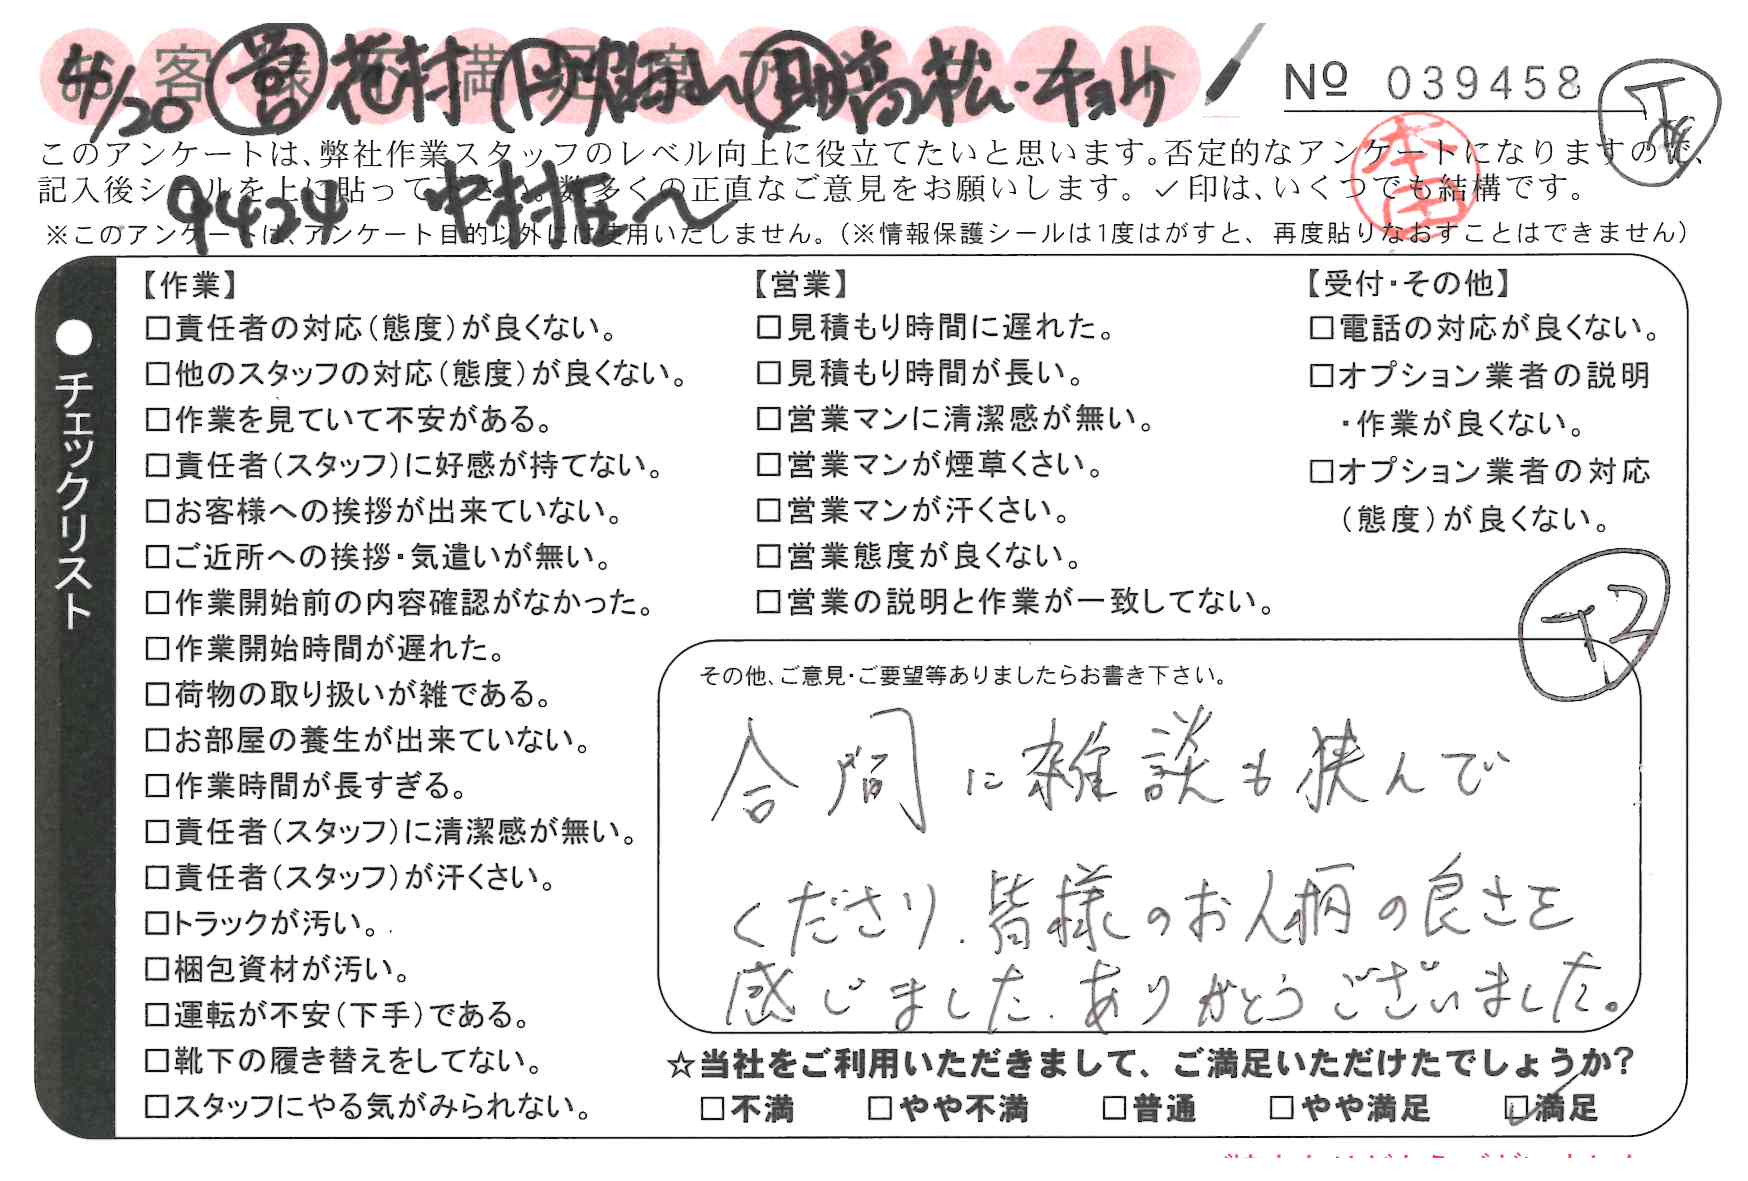 お客様不満足度アンケート
4/20 営 花村 ド 助 高松・チョウ
№ 039458
本田
このアンケートは、弊社作業スタッフのレベル向上に役立てたいと思います。否定的なアンケートになりますので、
記入後シールを上に貼って下さい。数多くの正直なご意見をお願いします。✓印は、いくつでも結構です。
9424 中村
※このアンケートは、アンケート目的以外には使用いたしません。(※情報保護シールは1度はがすと、再度貼りなおすことはできません)
●チェックリスト
【作業】
□責任者の対応(態度)が良くない。
□他のスタッフの対応(態度)が良くない。
□作業を見ていて不安がある。
□責任者(スタッフ)に好感が持てない。
□お客様への挨拶が出来ていない。
□ご近所への挨拶・気遣いが無い。
□作業開始前の内容確認がなかった。
□作業開始時間が遅れた。
□荷物の取り扱いが雑である。
□お部屋の養生が出来ていない。
□作業時間が長すぎる。
□責任者(スタッフ)に清潔感が無い。
□責任者(スタッフ)が汗くさい。
□トラックが汚い。
□梱包資材が汚い。
□運転が不安(下手)である。
□靴下の履き替えをしてない。
□スタッフにやる気がみられない。
【営業】
□見積もり時間に遅れた。
□見積もり時間が長い。
□営業マンに清潔感が無い。
□営業マンが煙草くさい。
□営業マンが汗くさい。
□営業態度が良くない。
□営業の説明と作業が一致してない。
【受付・その他】
□電話の対応が良くない。
□オプション業者の説明
・作業が良くない。
□オプション業者の対応
(態度)が良くない。
その他、ご意見・ご要望等ありましたらお書き下さい。
合間に雑談も挟んで
くださり、皆様のお人柄の良さを
感じました。ありがとうございました。
☆当社をご利用いただきまして、ご満足いただけたでしょうか?
□不満 □やや不満 □普通 □やや満足 ☑満足